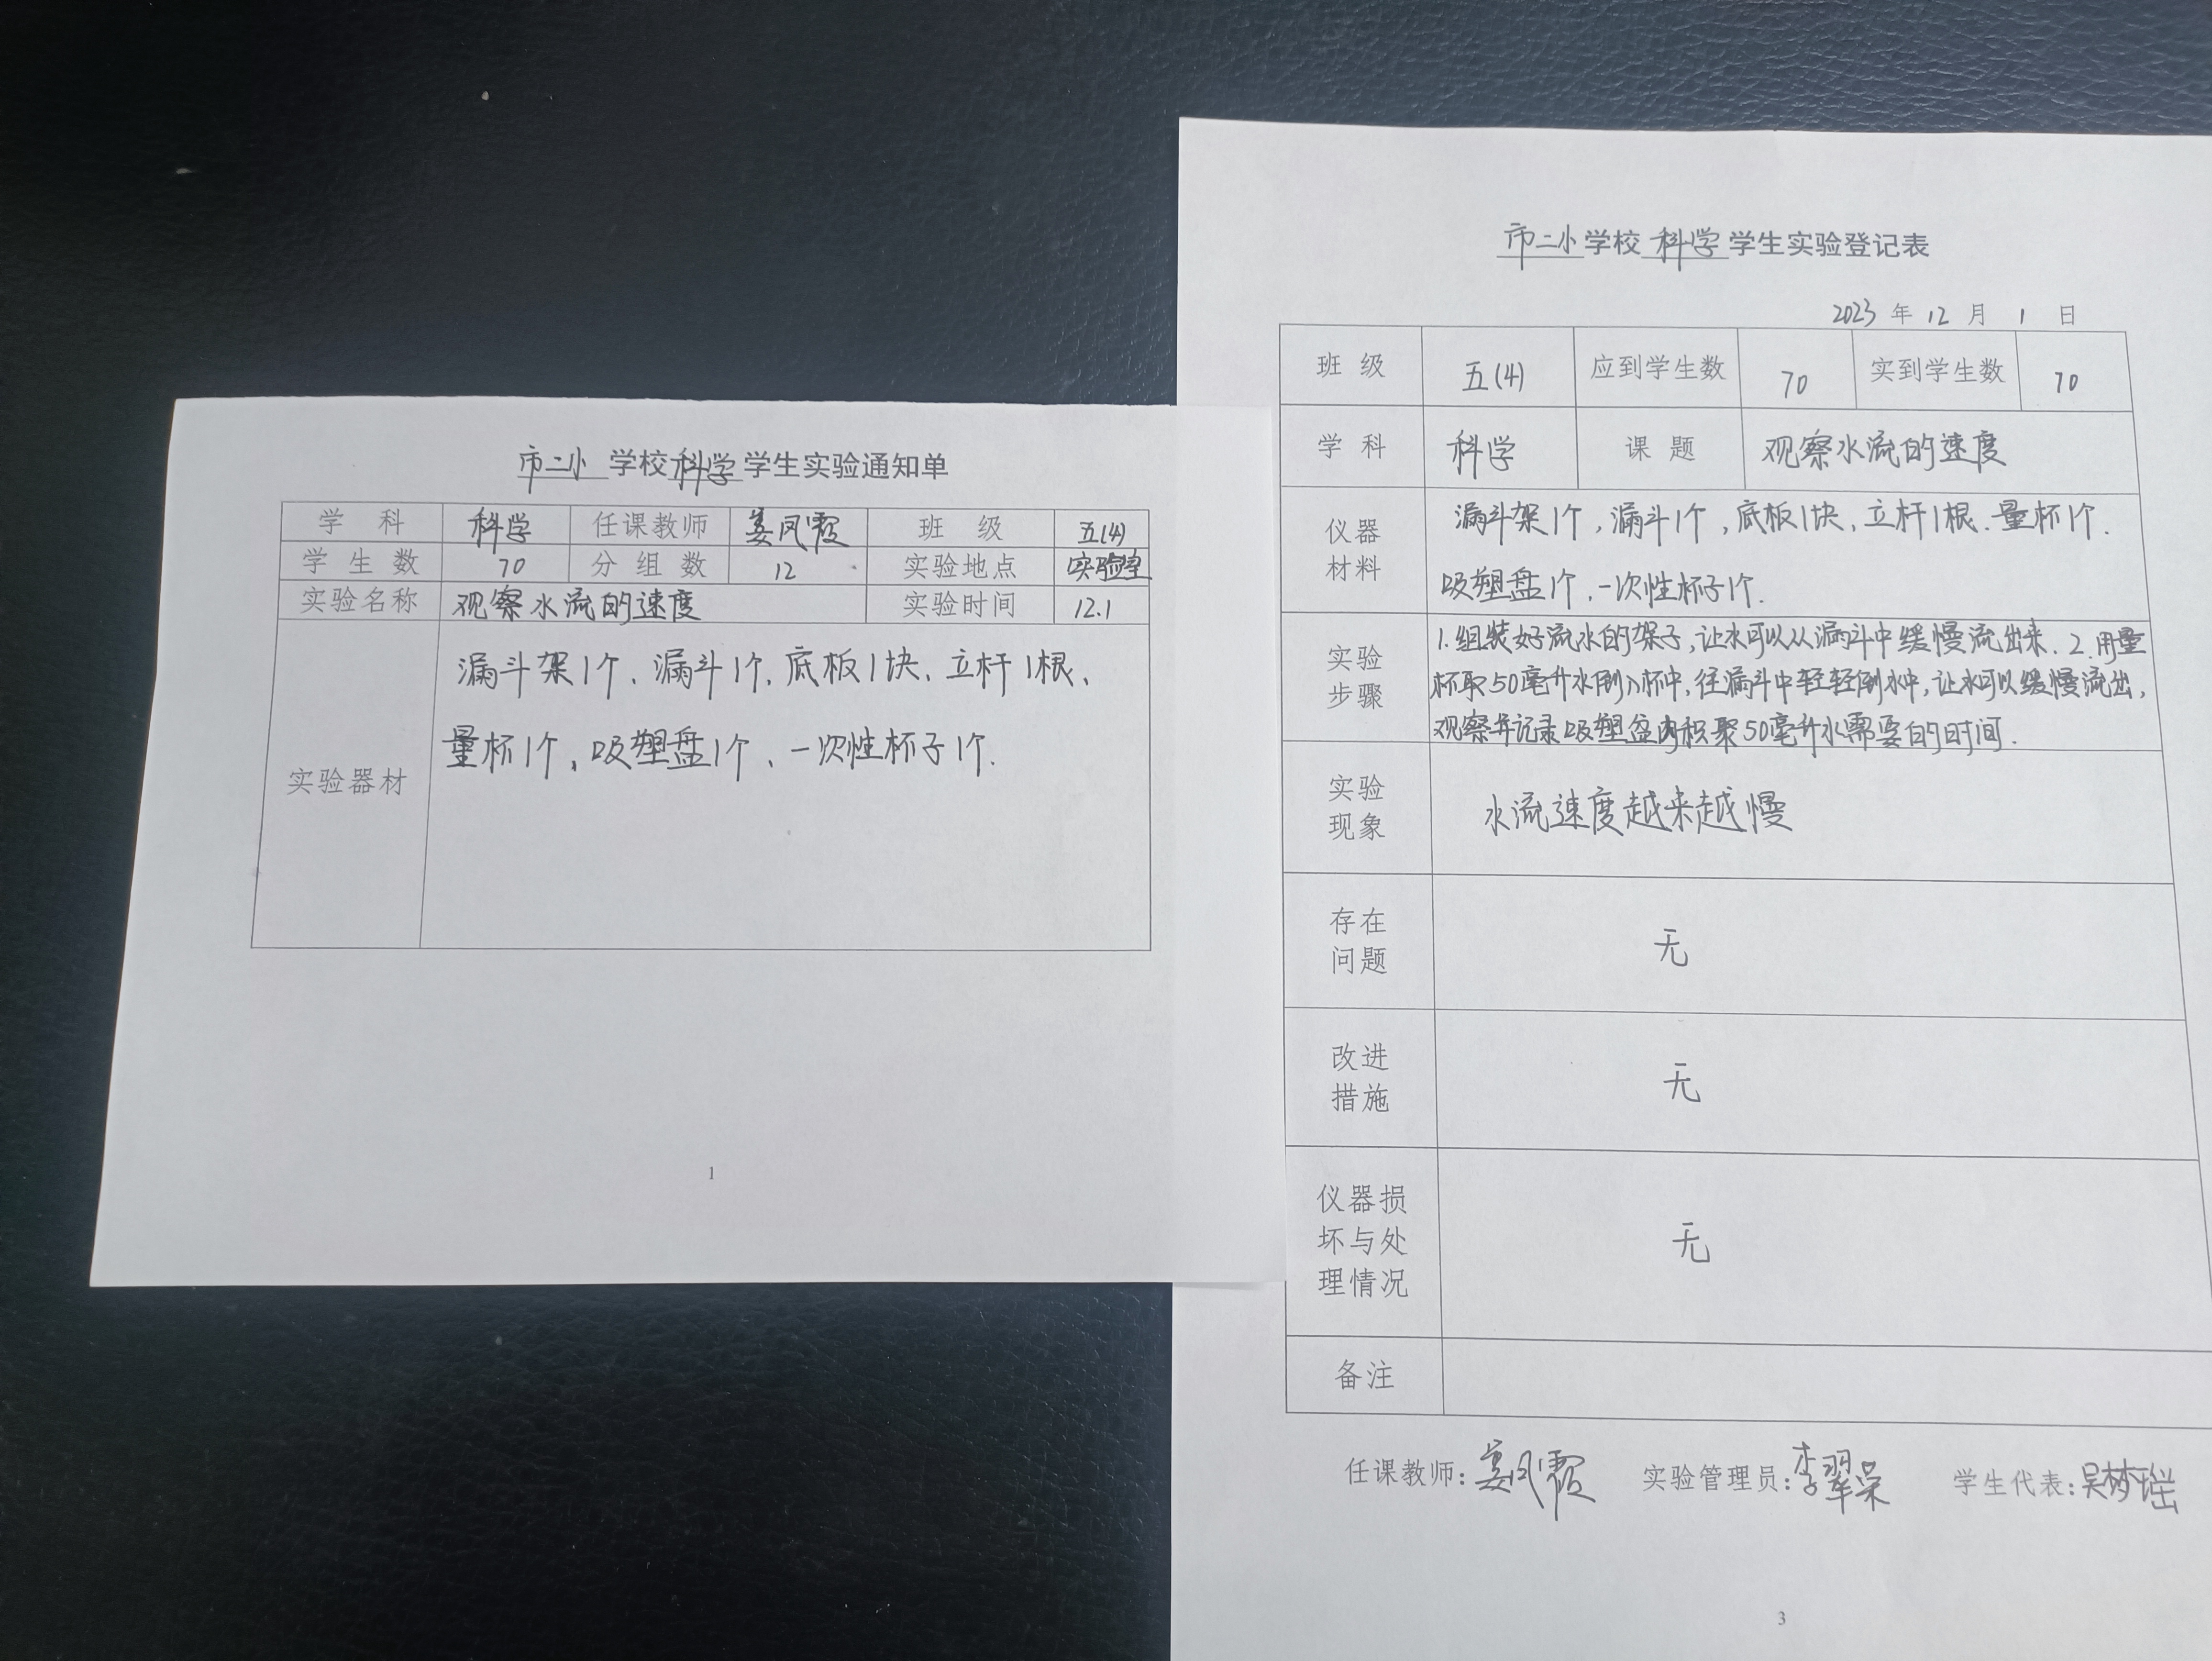 市二小学校科学学生实验通知单
学科 科学 任课教师 姜凤霞 班级 五(4)
学生数 70 分组数 12 实验地点 实验室
实验名称 观察水流的速度 实验时间 12.1
实验器材
漏斗架1个、漏斗1个、底板1块、立杆1根、
量杯1个、吸塑盘1个、一次性杯子1个.
1
市二小学校科学学生实验登记表
2023年12月1日
班级 五(4) 应到学生数 70 实到学生数 70
学科 科学 课题 观察水流的速度
仪器
材料
漏斗架1个,漏斗1个,底板1块、立杆1根、量杯1个.
吸塑盘1个,一次性杯子1个.
实验
步骤
1.组装好流水的架子,让水可以从漏斗中缓慢流出来.2.用量
杯取50毫升水倒入杯中,往漏斗中轻轻倒水中,让水可以缓慢流出,
观察并记录吸塑盆内积聚50毫升水需要的时间.
实验
现象
水流速度越来越慢
存在
问题
无
改进
措施
无
仪器损
坏与处
理情况
无
备注
任课教师:姜凤霞 实验管理员:李翠 学生代表:吴梦瑶
3